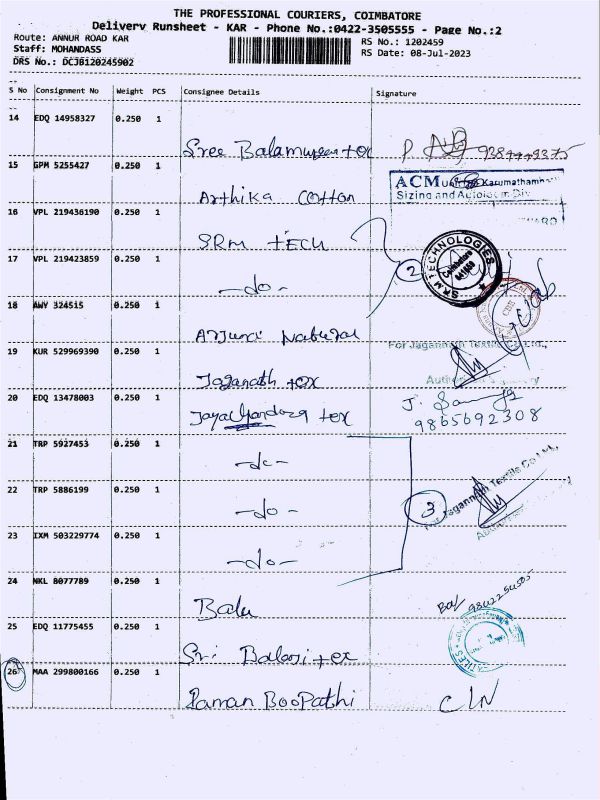 THE PROFESSIONAL COURIERS, COIMBATORE
Delivery Runsheet - KAR - Phone No.:0422-3505555 - Page No.:2
Route: ANNUR ROAD KAR RS No.: 1202459
Staff: MOHANDASS RS Date: 08-Jul-2023
DRS No.: DCJB120245902
S No Consignment No Weight PCS Consignee Details Signature
14 EDQ 14958327 0.250 1
Sree Balamurugan tex P
15 GPM 5255427 0.250 1
ACM Karumathampatti
Sizing and Autoloom Div
Arthika Cotton
16 VPL 219436190 0.250 1
SRM tECH
17 VPL 219423859 0.250 1
2 SRM TECHNOLOGIES Coimbatore 641 659
-do-
18 AWY 324515 0.250 1
Arjuna Natural
19 KUR 529969390 0.250 1
For Jagannath Textile Co Ltd.,
Jaganath tex
20 EDQ 13478003 0.250 1
Jayachandera tex 9865692308
21 TRP 5927453 0.250 1
-do-
22 TRP 5886199 0.250 1
3 For Jagannath Textile Co Ltd.,
-do-
23 IXM 503229774 0.250 1
-do-
24 NKL 8077789 0.250 1
Balu
25 EDQ 11775455 0.250 1
Sri Balaji tex
26 MAA 299800166 0.250 1
Raman BooPathi CLN